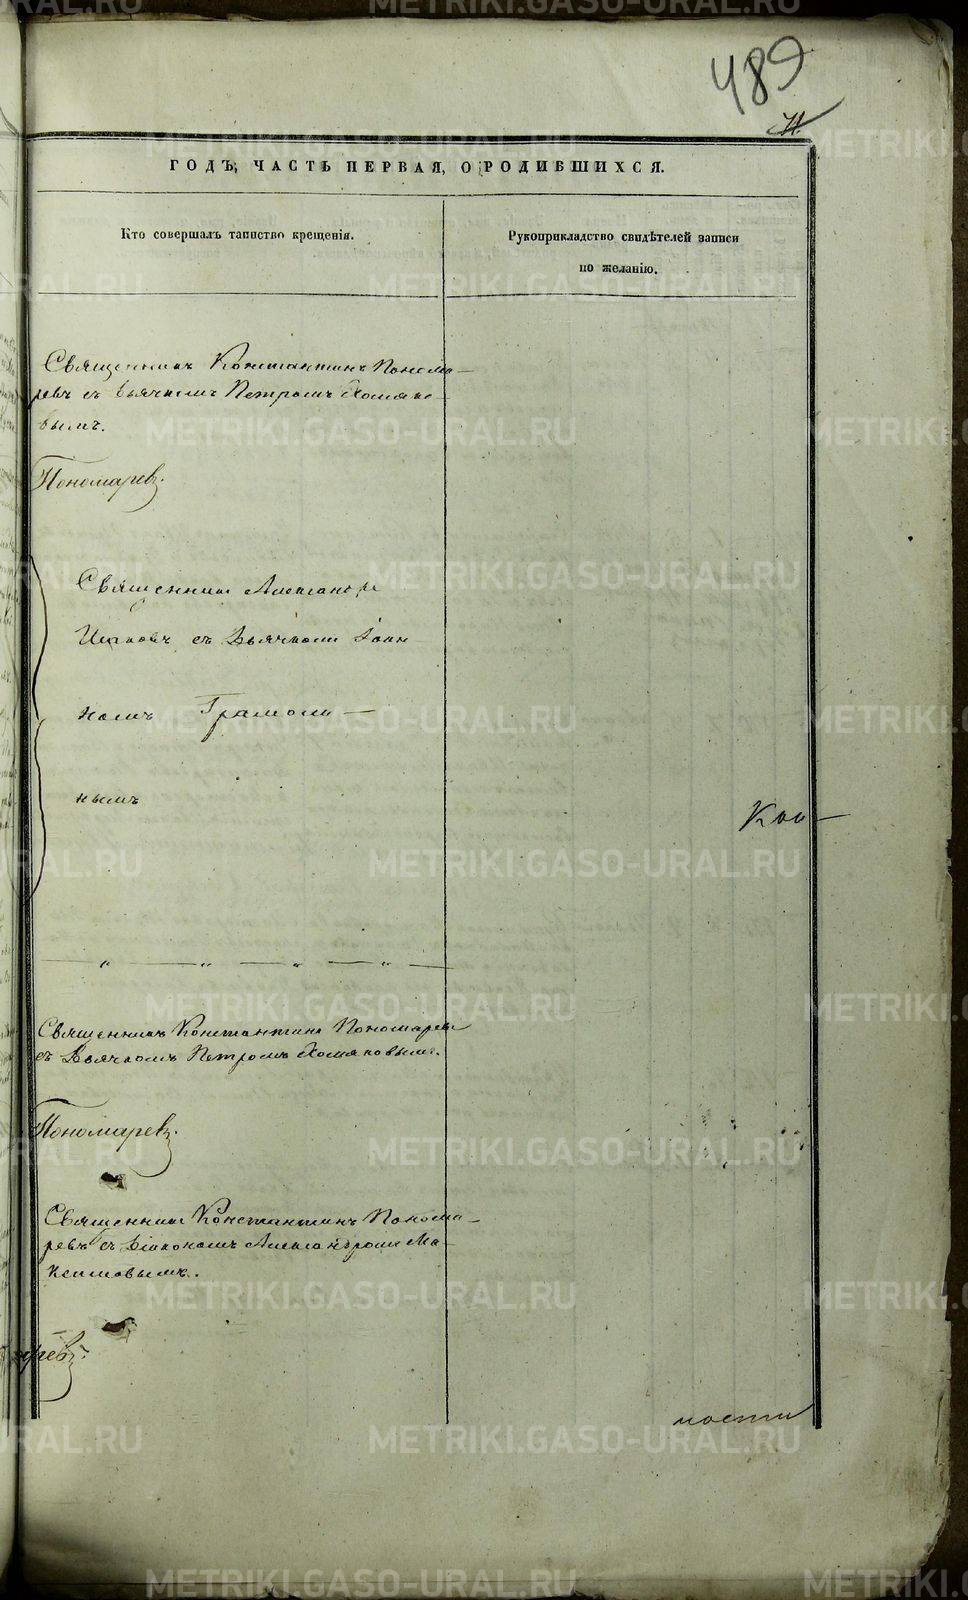 489
ГОДЪ, ЧАСТЬ ПЕРВАЯ, О РОДИВШИХСЯ.
Кто совершалъ таинство крещенія.
Рукоприкладство свидѣтелей записи
по желанію.
Священникъ Константинъ Понома-
ревъ съ Дьячкомъ Петромъ Хомяко-
вымъ.
Пономаревъ.
Священникъ Александръ
съ Дьячкомъ Іоан
номъ Грамоли-
нымъ
Священникъ Константинъ Пономаревъ
съ Дьячкомъ Петромъ Хомяковымъ.
Пономаревъ.
Священникъ Константинъ Понома-
ревъ съ Діакономъ Александромъ Ма-
ксимовымъ.
ревъ.
мости
METRIKI.GASO-URAL.RU